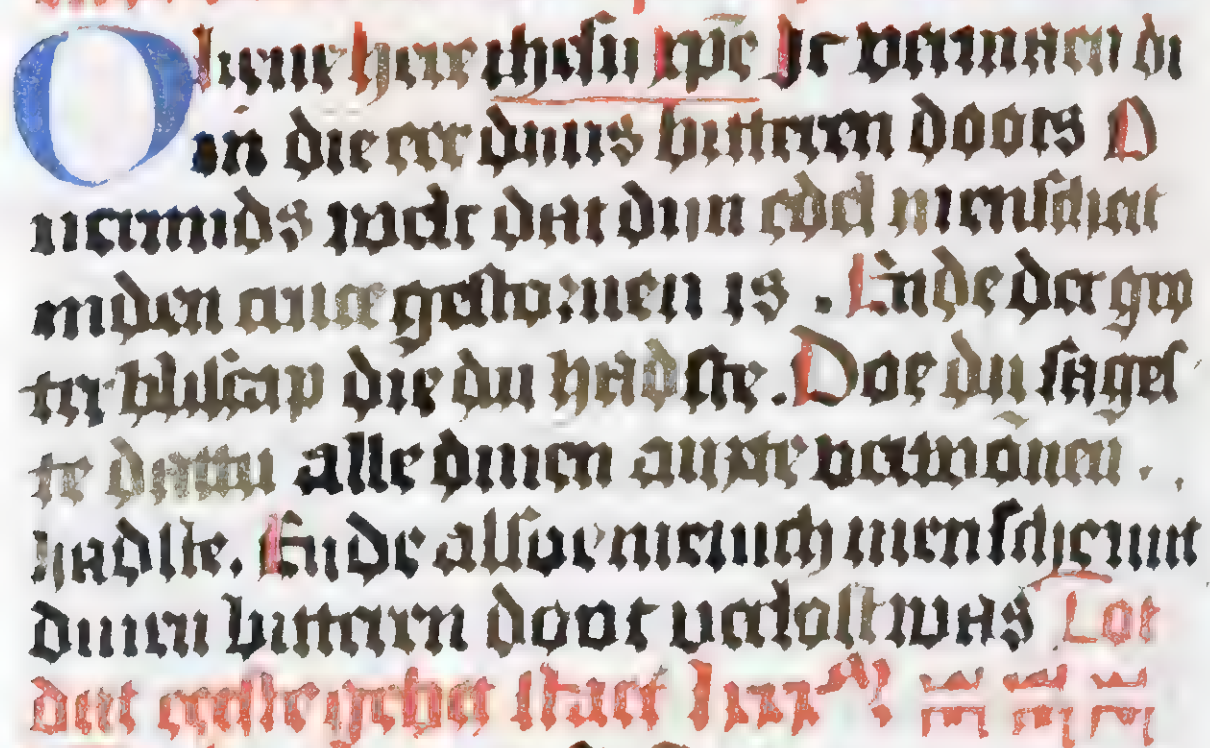 O lieue here ihesu xpe Ic vermaen di
in die eer dijns bitteren doots D
nemmids welc dat dijn edel menscheit
inden gestoruen is . Ende der gro
ter bliscap die du hadste . Doe du sages
te dattu alle dinen verwonen .
hadste. Ende alsoe menich mensche mit
dinen bitteren doot verlost was Tot
dat eerste gebet staet